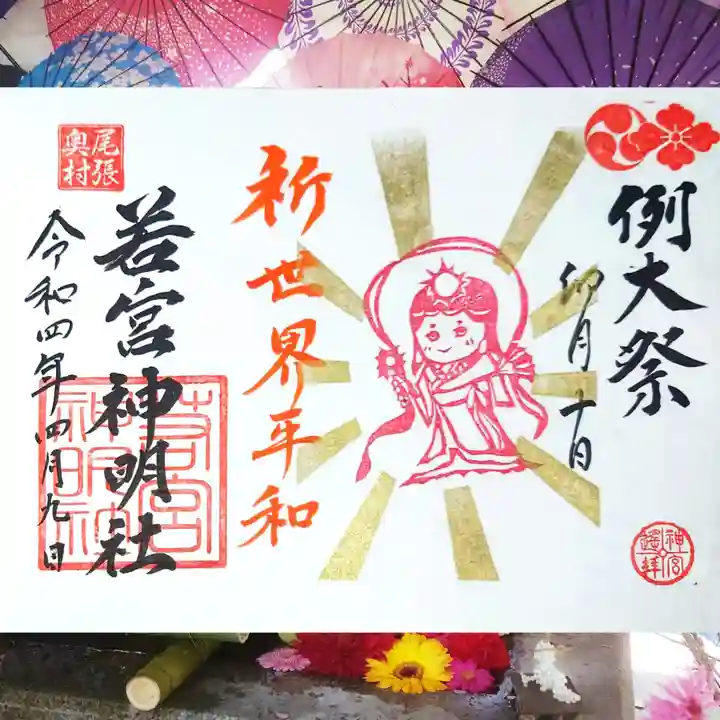 例大祭
卯月十日
神宮
遥拝
祈世界平和
尾張
奥村
若宮神明社
若宮
神明社
令和四年四月九日